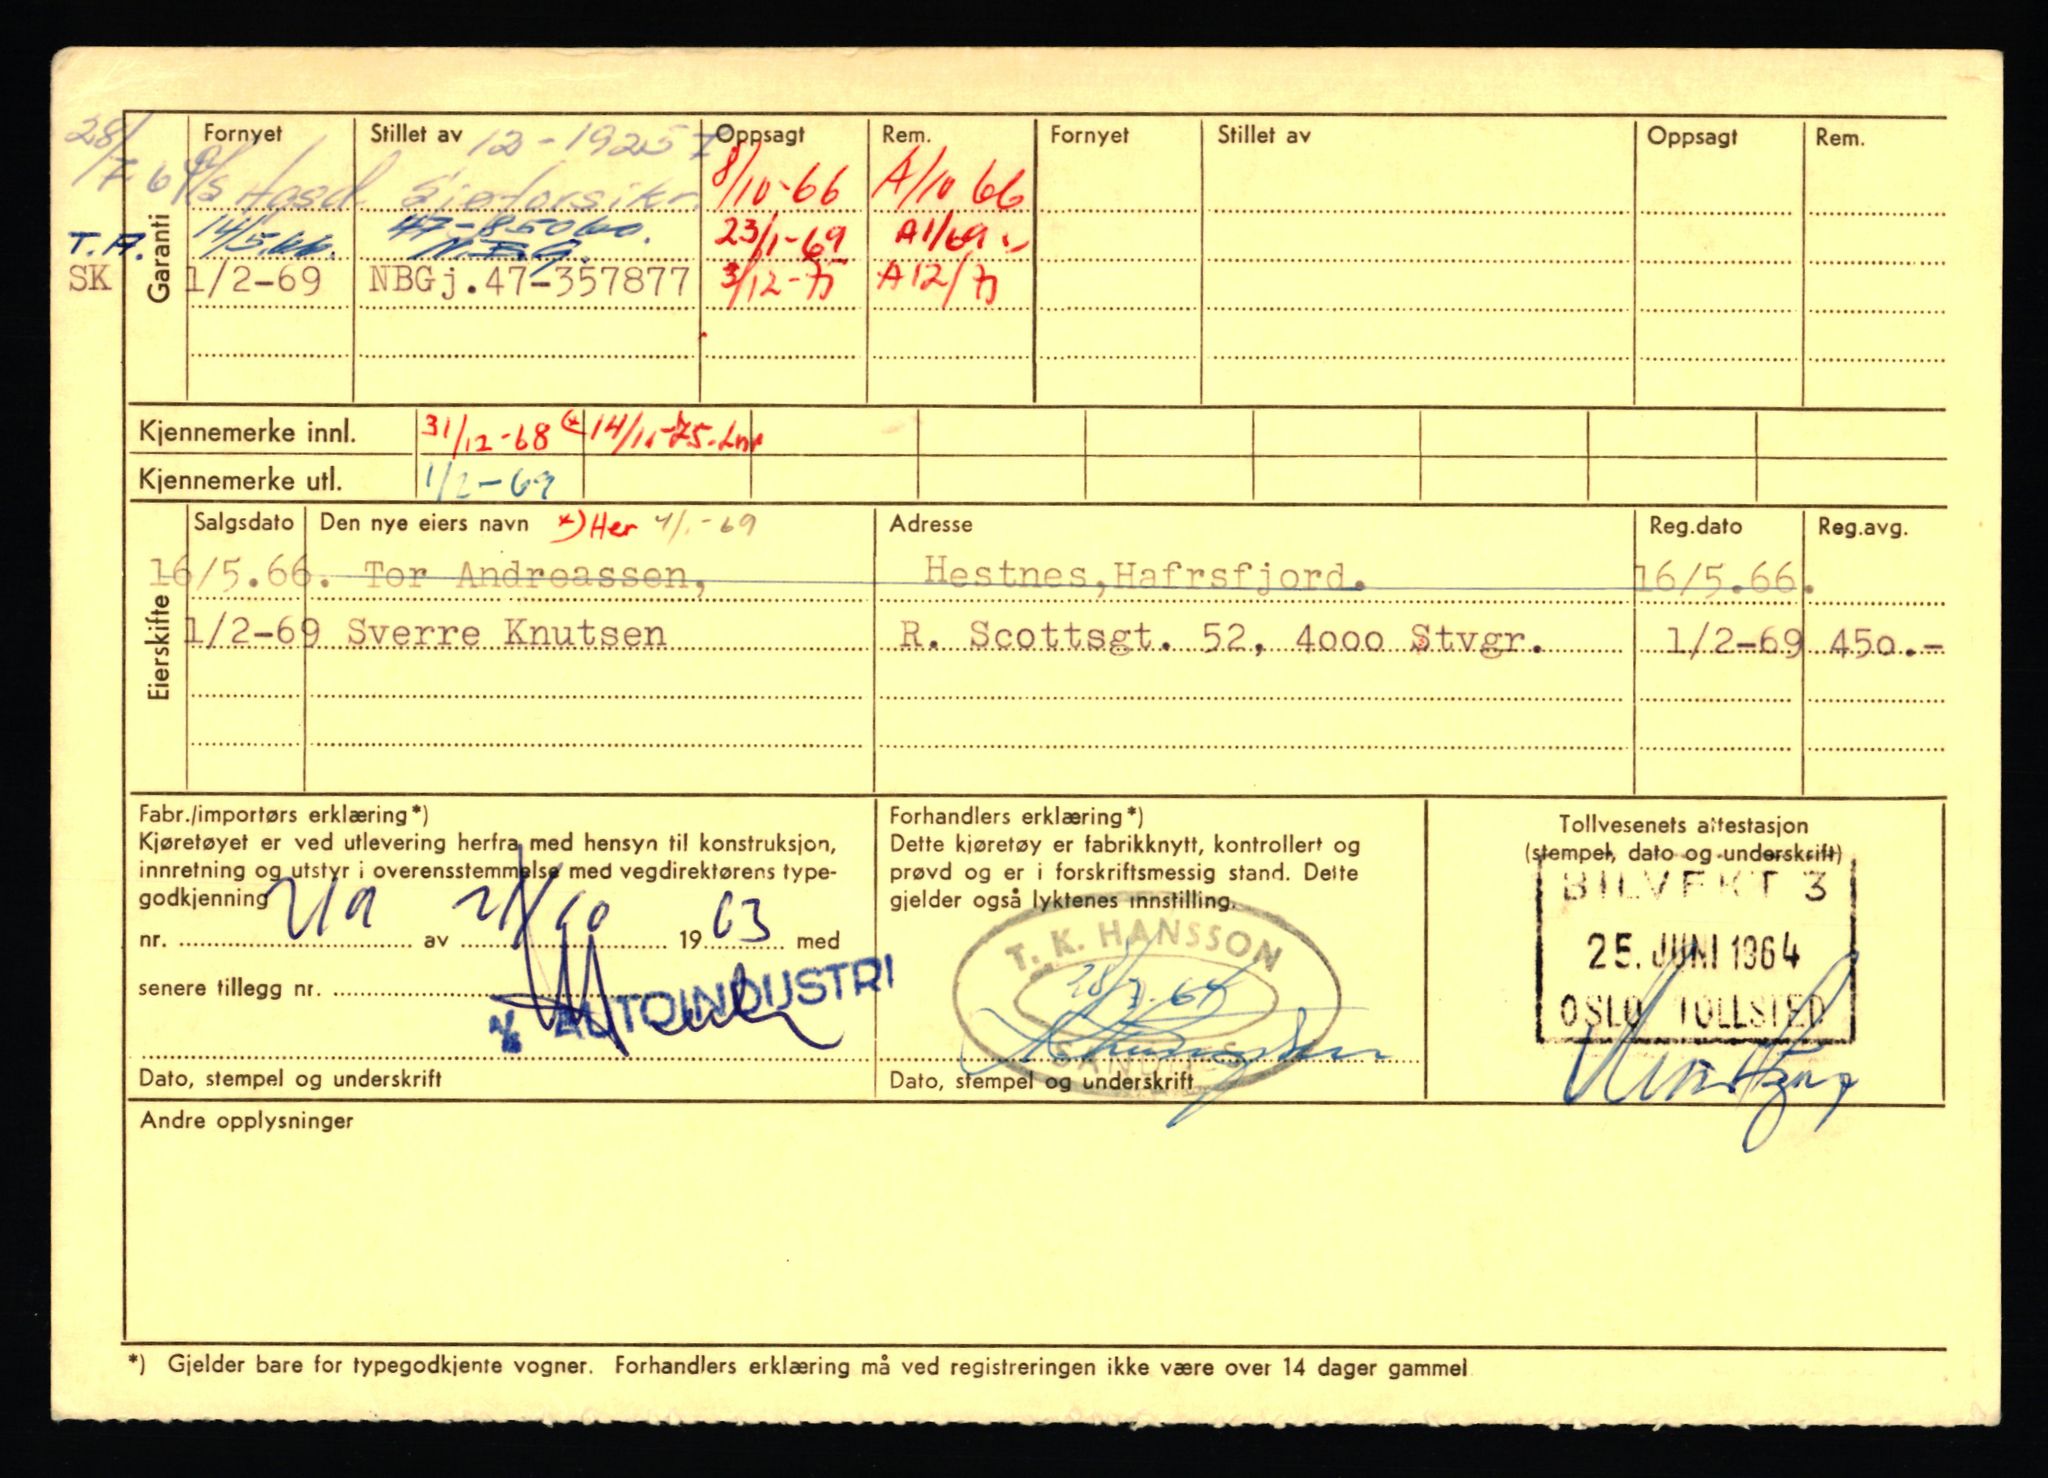 Fornyet Stillet av 12-1925 I Oppsagt Rem. Fornyet Stillet av Oppsagt Rem.
28/7 64 8/10-66 A/10 66
T.A. 14/5.66. 23/1-69 A1/69
SK 1/2-69 NBGj.47-357877 3/12-71 A12/71
Garanti
Kjennemerke innl. 31/12-68 14/11-75.
Kjennemerke utl. 1/2-69
Salgsdato Den nye eiers navn *) Her Adresse Reg.dato Reg.avg.
16/5.66. Tor Andreassen, Hestnes,Hafrsfjord. 16/5.66.
1/2-69 Sverre Knutsen R. Scottsgt. 52, 4000 Stvgr. 1/2-69 450.-
Eierskifte
Fabr./importørs erklæring*)
Kjøretøyet er ved utlevering herfra med hensyn til konstruksjon,
innretning og utstyr i overensstemmelse med vegdirektørens type-
godkjenning
nr. av 19 63 med
senere tillegg nr.
A/S AUTOINDUSTRI
Dato, stempel og underskrift
Forhandlers erklæring*)
Dette kjøretøy er fabrikknytt, kontrollert og
prøvd og er i forskriftsmessig stand. Dette
gjelder også lyktenes innstilling.
T. K. HANSSON
28/7-64
SANDNES
Dato, stempel og underskrift
Tollvesenets attestasjon
(stempel, dato og underskrift)
BILVEKT 3
25. JUNI 1964
OSLO TOLLSTED
Andre opplysninger
*) Gjelder bare for typegodkjente vogner. Forhandlers erklæring må ved registreringen ikke være over 14 dager gammel